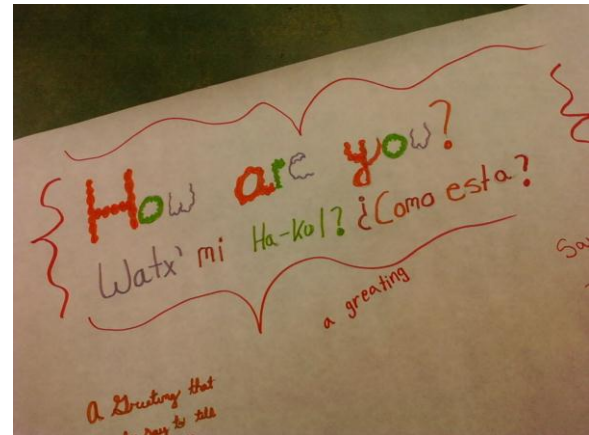 How are you?
Watx' mi Ha-Kol? ¿Como esta?
a greating
A Greeting that
say to